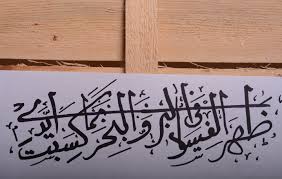 ظهر الفساد في البر والبحر بما كسبت أيدي